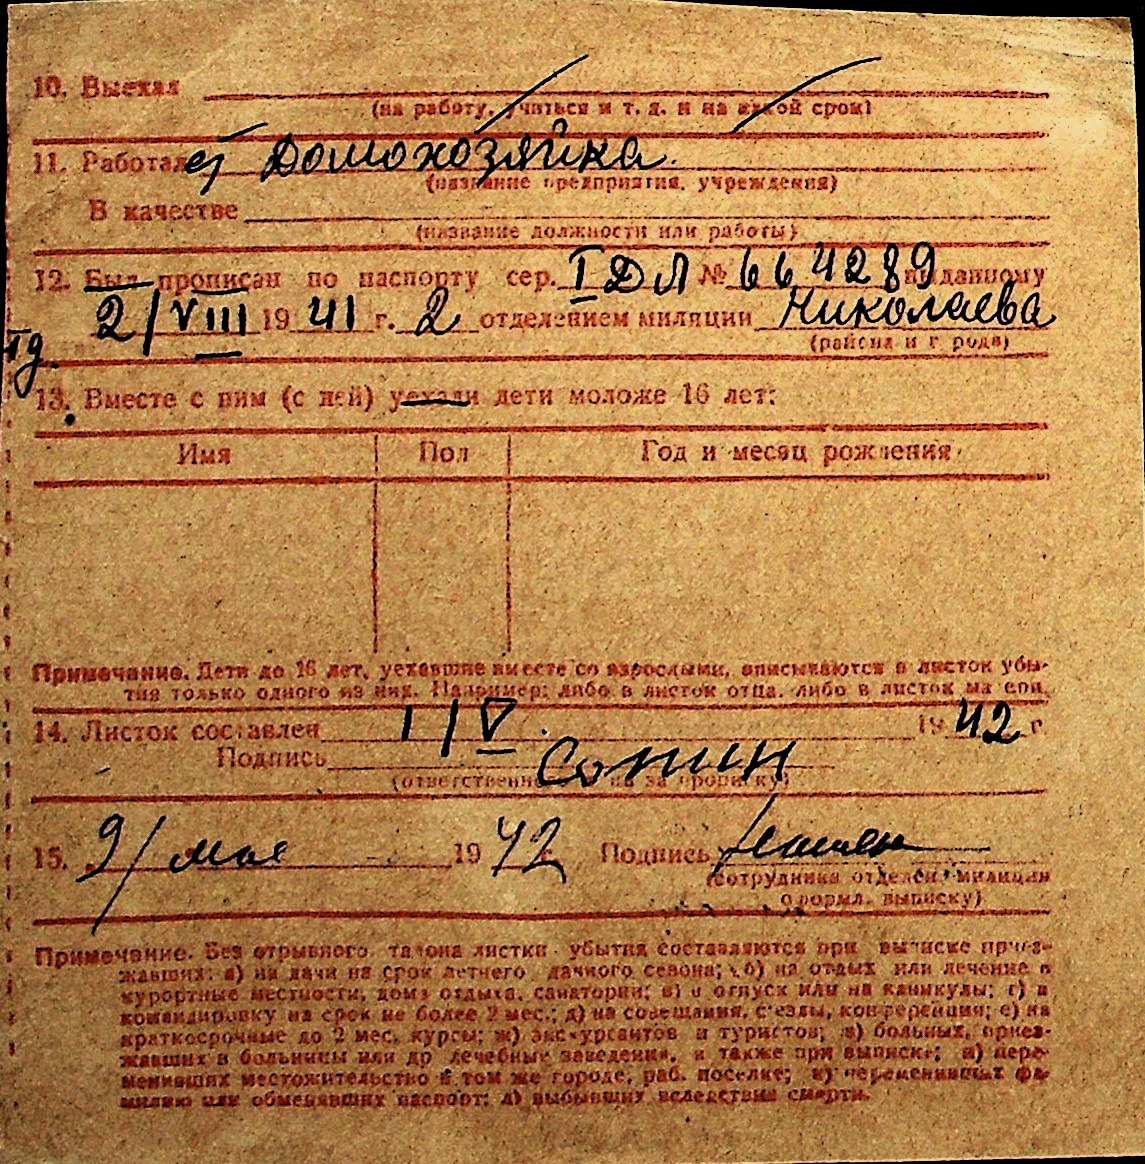 10. Выехал
(на работу, учиться и т. д. и на какой срок)
11. Работал Домохозяйка.
(название предприятия, учреждения)
В качестве
(название должности или работы)
12. Был прописан по паспорту сер. I ДЛ № 664289 выданному
2/VIII 1941 г. 2 отделением милиции Николаева
(района и города)
13. Вместе с ним (с ней) уехали дети моложе 16 лет:
Имя Пол Год и месяц рождения
Примечание. Дети до 16 лет, уехавшие вместе со взрослыми, вписываются в листок убы-
тия только одного из них. Например: либо в листок отца, либо в листок матери.
14. Листок составлен 1/V. 1942 г
Подпись Сомин
(ответственного лица за прописку)
15. 9/ мая 1942 Подпись
(сотрудника отделен. милиции
оформл. выписку)
Примечание. Без отрывного талона листки убытия составляются при выписке приез-
жавших: а) на дачи на срок летнего дачного сезона; б) на отдых или лечение в
курортные местности, дома отдыха, санатории; в) в отпуск или на каникулы; г) в
командировку на срок не более 2 мес.; д) на совещания, съезды, конференции; е) на
краткосрочные до 2 мес. курсы; ж) экскурсантов и туристов; з) больных, приез-
жавших в больницы или др лечебные заведения, а также при выписке; и) пере-
менивших местожительство в том же городе, раб. поселке; к) переменивших фа-
милию или обменявших паспорт; л) выбывших вследствие смерти.